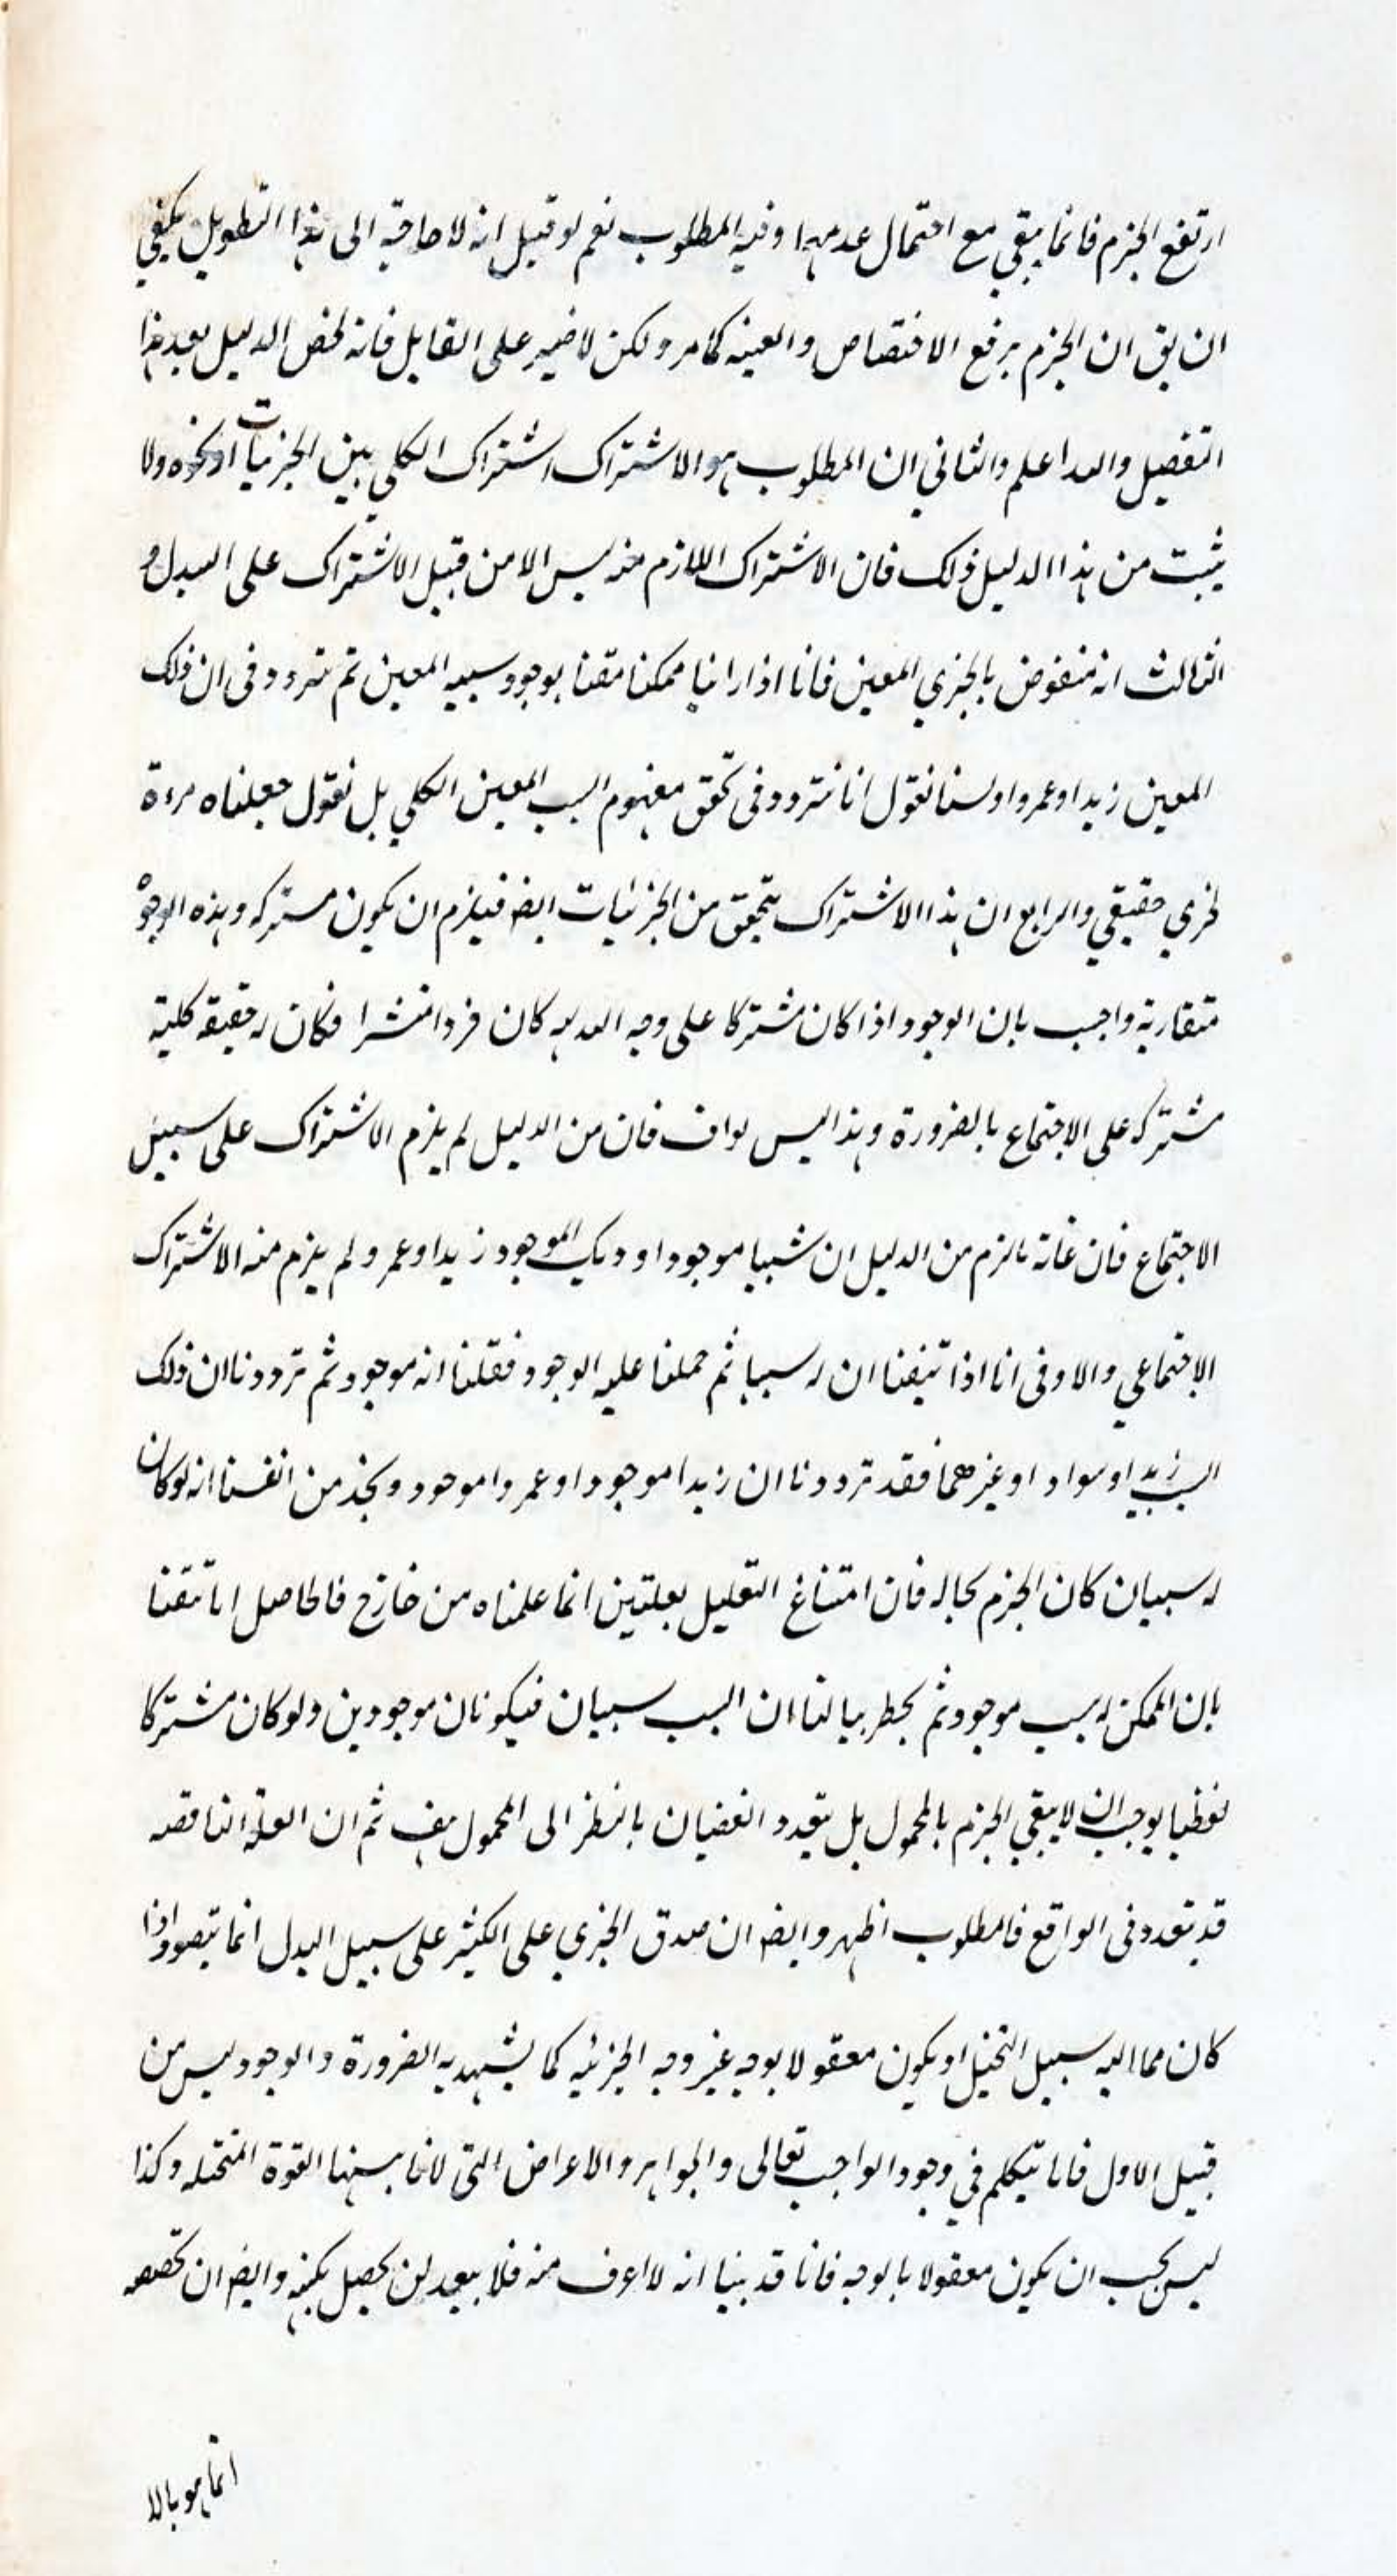 ارتفع الجزم فانما يبقي مع احتمال عدمهما وفيه المطلوب نعم لو قيل انه لا حاجة الى هذا التطويل يكفي
ان يق ان الجزم يرفع الاختصاص والعينيه كما مر ولكن لا ضير على القايل فانه لخص الدليل بعد هذا
التفصيل والله اعلم والثاني ان المطلوب هو الاشتراك اشتراك الكلي بين الجزئيات او نحوه ولا
يثبت من هذا الدليل ذلك فان الاشتراك اللازم منه ليس الا من قبيل الاشتراك على البدل و
الثالث انه منقوض بالجزي المعين فانا اذا راينا ممكنا تيقنا بوجود سببه المعين ثم نتردد فى ان ذلك
المعين زيد او عمرو او لسنا نقول انا نتردد فى تحقق مفهوم السبب المعين الكلي بل نقول جعلناه مرءة
لجزي حقيقي والرابع ان هذا الاشتراك يتحقق من الجزئيات ايضا فيلزم ان يكون مشتركه وهذه الوجوه
متقاربة واجيب بان الوجود اذا كان مشتركا على وجه البدليه كان فردا منتشرا فكان له حقيقة كلية
مشتركه على الاجتماع بالضرورة وهذا ليس بواف فان من الدليل لم يلزم الاشتراك على سبيل
الاجتماع فان غاية ما لزم من الدليل ان شيبا موجودا و ذلك الموجود زيد او عمر و لم يلزم منه الاشتراك
الاجتماعي والاوفى انا اذا تيقنا ان له سببا ثم حملنا عليه الوجود فقلنا انه موجود ثم ترددنا ان ذلك
السبب زيد او سواد او غيرهما فقد ترددنا ان زيدا موجود او عمروا موجود ونجد من انفسنا انه لو كان
له سببان كان الجزم بحاله فان امتناع التعليل بعلتين انما علمناه من خارج فالحاصل انا تيقنا
بان الممكن له سبب موجود ثم يخطر ببالنا ان السبب سببان فيكونان موجودين ولو كان مشتركا
لفظيا يوجب ان لا يبقي الجزم بالمحمول بل يتعدد القضيان بالنظر الى المحمول هف ثم ان العلة الناقصه
قد تتعدد فى الواقع فالمطلوب اظهر وايضا ان صدق الجزي على الكثير على سبيل البدل انما يتصور اذا
كان مما اليه سبيل التخيل او يكون معقولا بوجه غير وجه الجزئيه كما يشهد به الضرورة والوجود ليس من
قبيل الاول فانا نتكلم في وجود الواجب تعالى والجواهر والاعراض التى لا تنالها القوة المتخيله وكذا
ليس يجب ان يكون معقولا بالوجه فانا قد بينا انه لا اعرف منه فلا يبعد ان يحصل بكنهه وايضا ان تخصصه
انما هو بالا